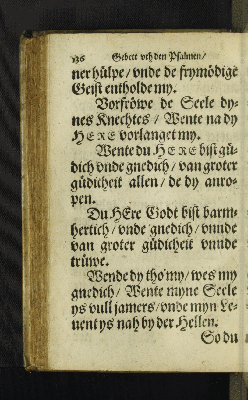 136 Gebett vth den Psalmen/
ner hülpe/ vnde de frymödige
Geist entholde my.
Vorfröwe de Seele dy-
nes Knechtes / Wente na dy
HERE vorlanget my.
Wente du HERE bist gü-
dich vnde gnedich/ van groter
güdicheit allen / de dy anro-
pen.
Du HEre Godt bist barm-
hertich / vnde gnedich / vnnde
van groter güdicheit vnnde
trüwe.
Wende dy tho my/ wes my
gnedich/ Wente myne Seele
ys vull jamers/ vnde myn Le-
uent ys nah by der Hellen.
So du